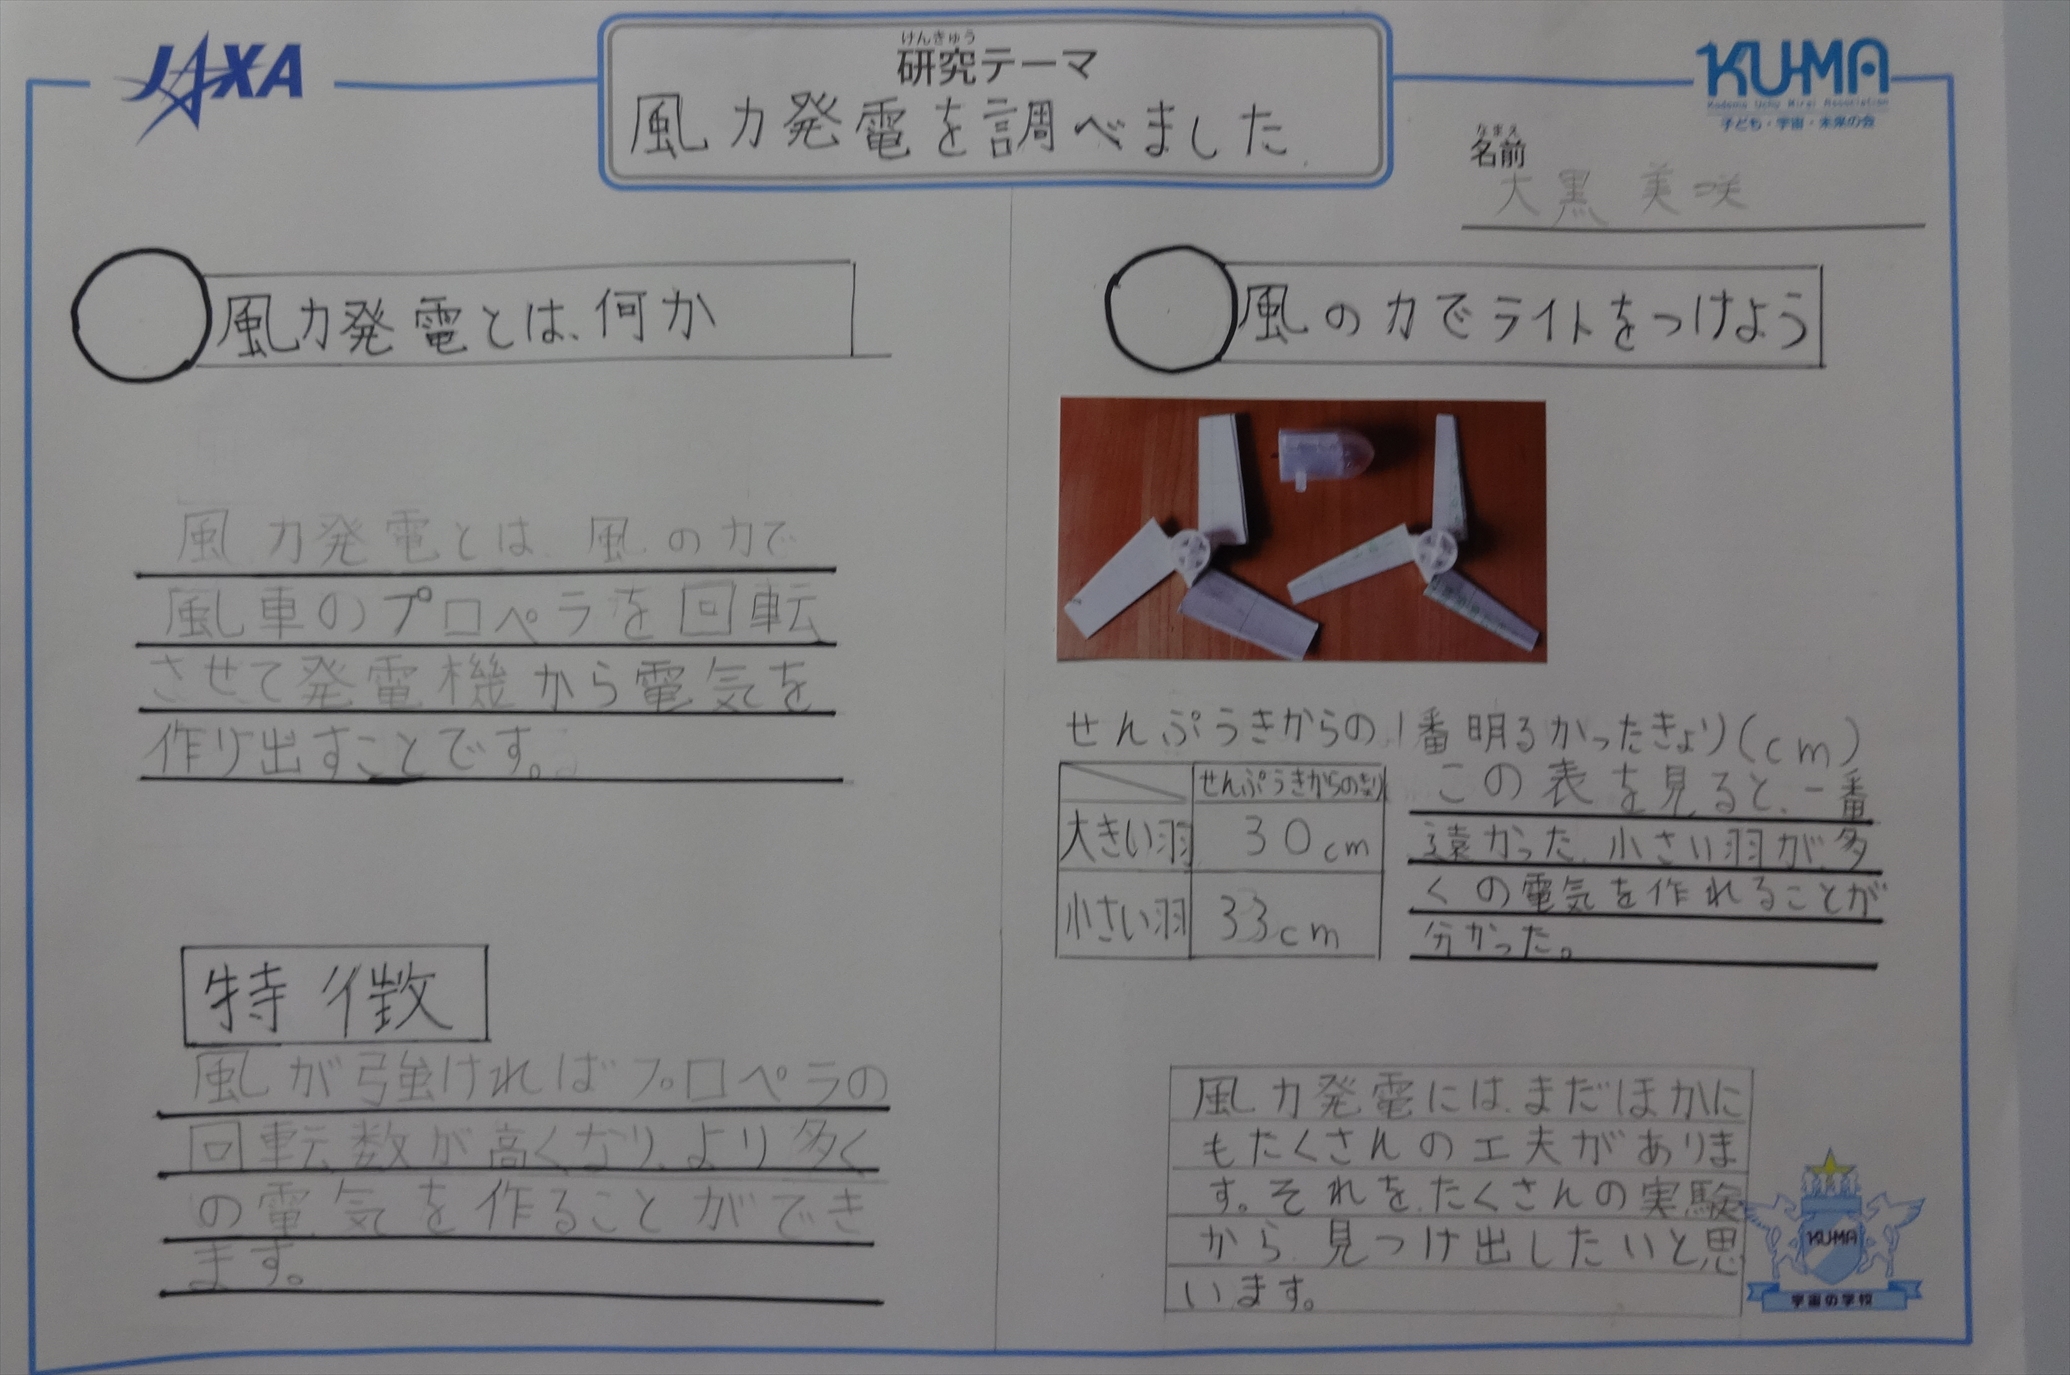 JAXA
けんきゅう
研究テーマ
風力発電を調べました
KU-MA
Kodomo Uchu Mirai Association
子ども・宇宙・未来の会
なまえ
名前
大黒 美咲
風力発電とは、何か
風力発電とは、風の力で
風車のプロペラを回転
させて発電機から電気を
作り出すことです。
特徴
風が強ければプロペラの
回転数が高くなり、より多く
の電気を作ることができ
ます。
風の力でライトをつけよう
せんぷうきからの1番明るかったきょり(cm)
せんぷうきからの
大きい羽 30cm
小さい羽 33cm
この表を見ると、一番
遠かった、小さい羽が、多
くの電気を作れることが
分かった。
風力発電には、まだほかに
もたくさんの工夫がありま
す。それを、たくさんの実験
から、見つけ出したいと思
います。
KU-MA
宇宙の学校